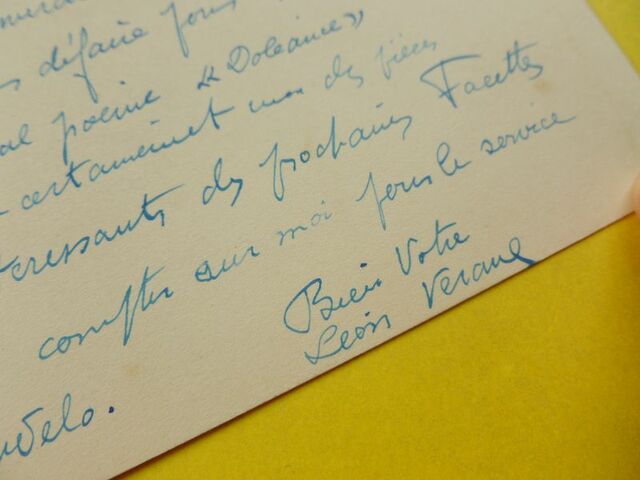 défaire pour
poème « Doléance »
certainement une des pièces
éressants des prochaines Facettes
compter sur moi pour le service
Bien Votre
Léon Verane